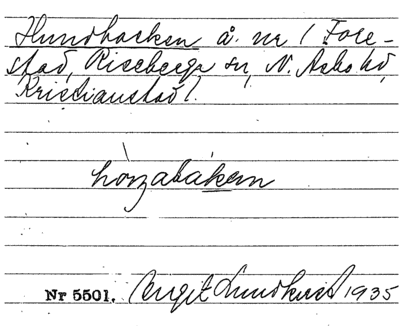 Hundbacken å nr 1 Fore-
stad, Riseberga sn, N. Åsbo hd,
Kristianstad l.
Nr 5501. Birgit Lundkvist 1935